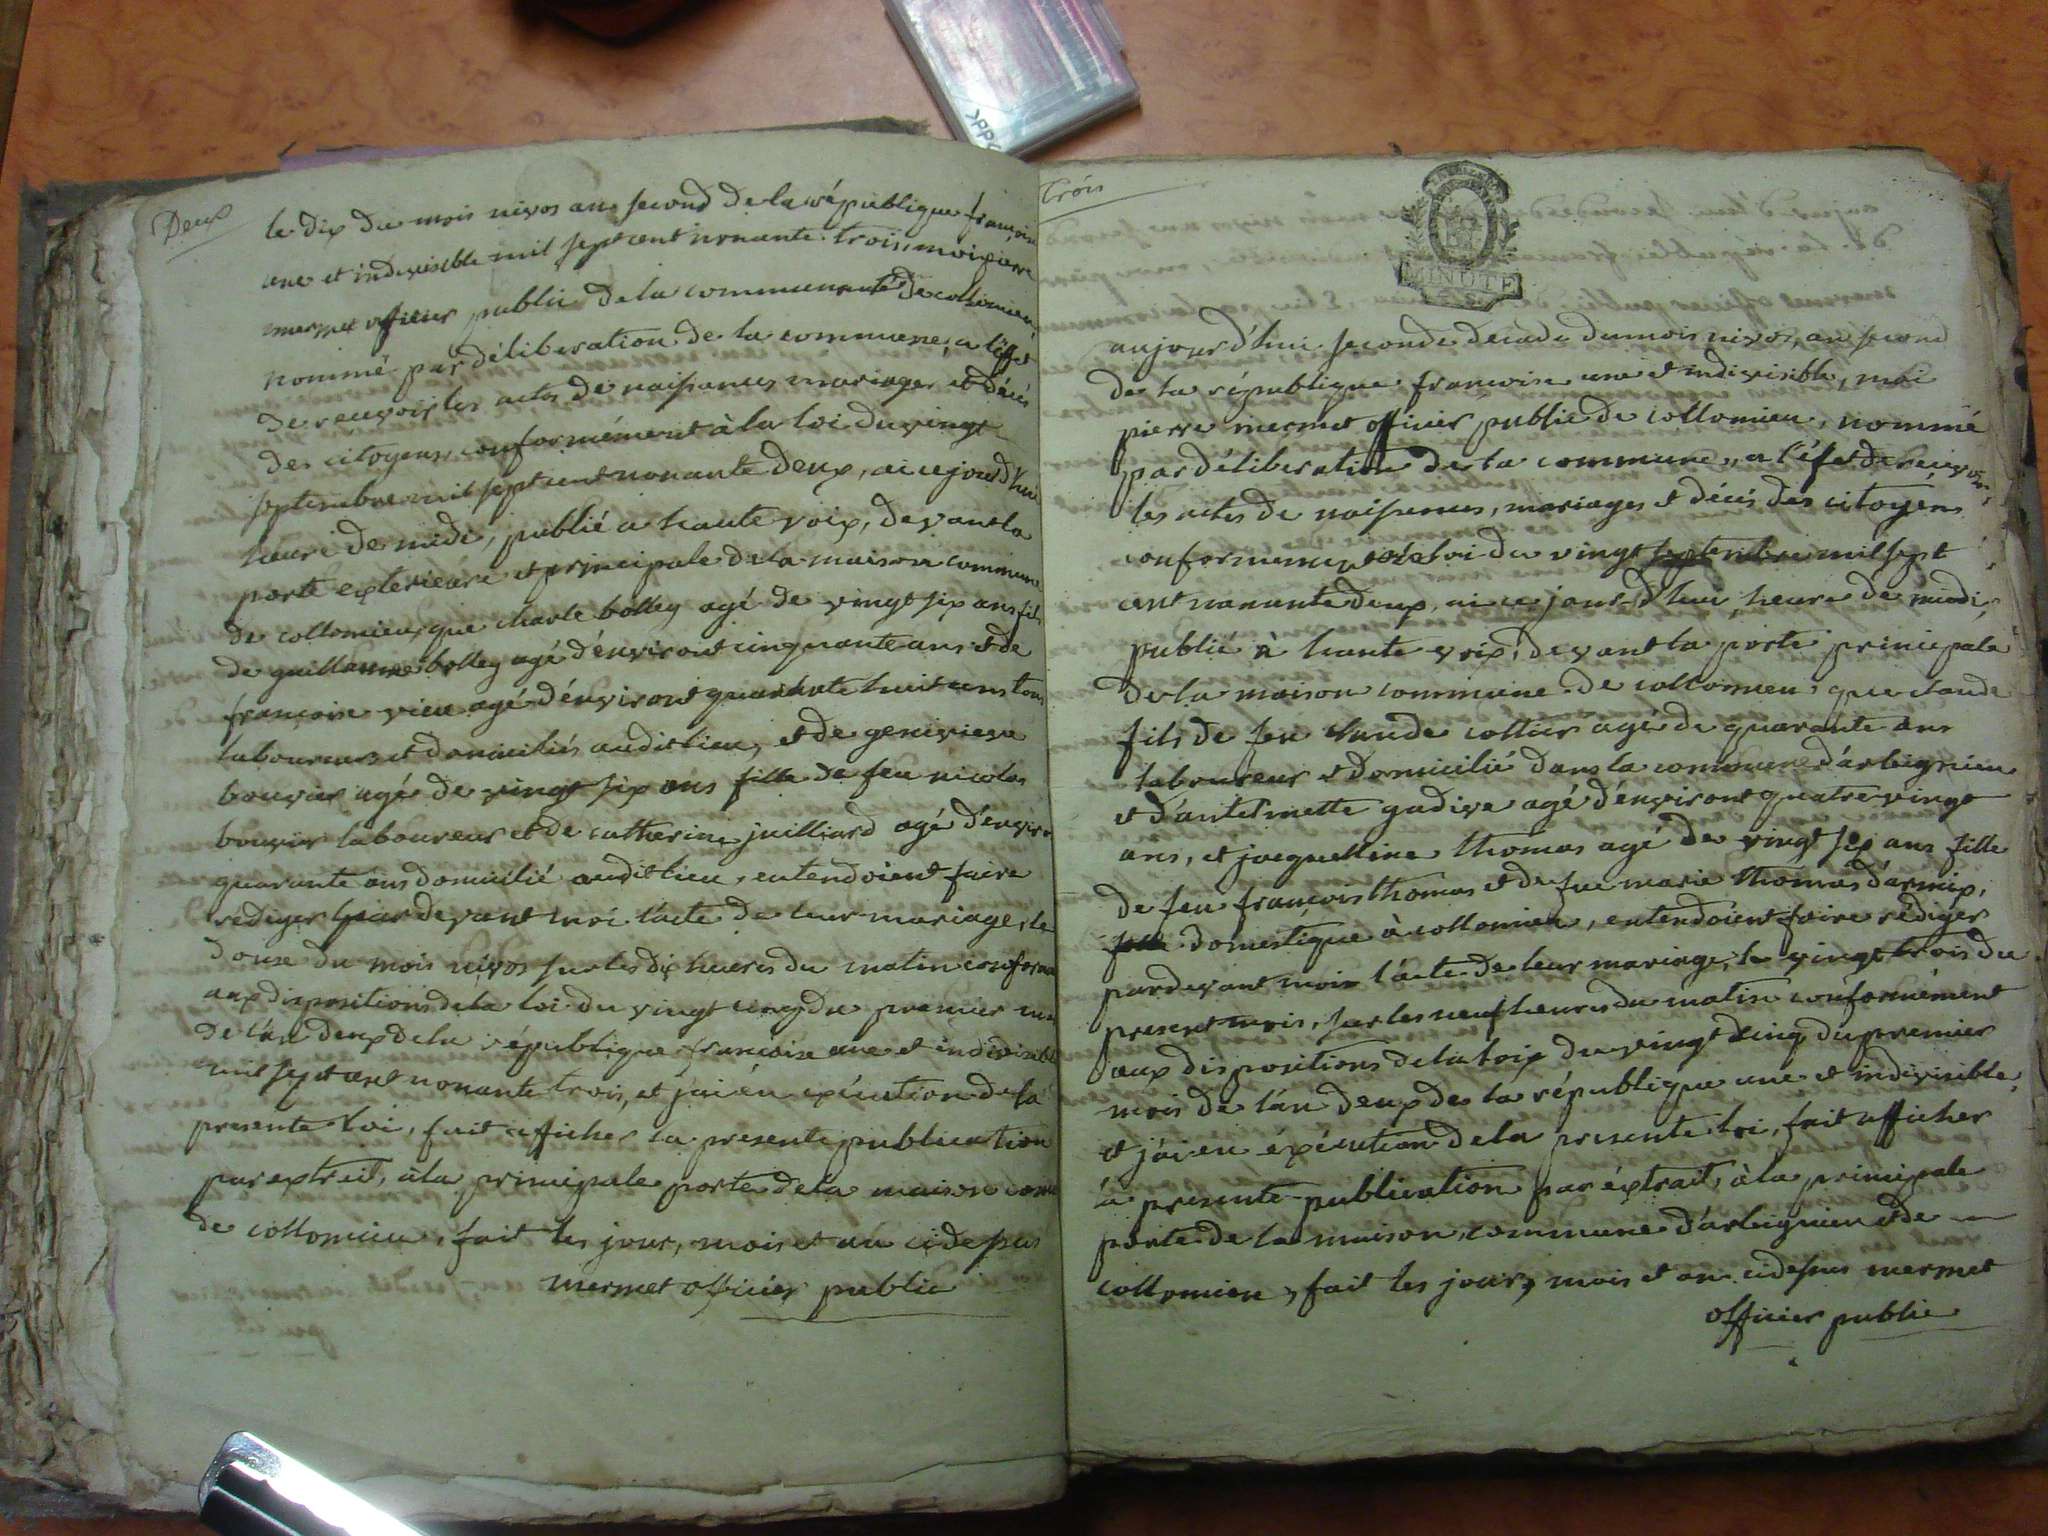 Deux
le dix du mois nivos an second de la république françoise
une et indivisible mil sept cent nonante trois, moi pierre
mermet officier public de la communauté de collomieu,
nommé par déliberation de la commune, a l'effet
de recevoir les actes de naissances mariages et décès
des citoyens, conformément à la loi du vingt
septembre mil sept cent nonante deux, ai cejourd'hui
heure de midi, publié a haute voix, devant la
porte exterieure et principale de la maison commune
de collomieu, que charle bolley agé de vingt six ans fils
de guillaume bolley agé d'environt cinquante ans et de
françoise agé d'environt quarante huit ans tous
laboureurs et domiciliés audit lieu, et de genevieve
bouvier agé de vingt six ans fille de feu nicolas
bouvier laboureur et de catherine juilliard agé d'environ
quarante ans domicilié audit lieu, entendoient faire
rediger par devant moi l'acte de leur mariage, le
douze du mois nivos sur les dix heures du matin conforme
aux dispositions de la loi du vingt cinq du premier mois
de l'an deux de la république françoise une et indivisible
mil sept cent nonante trois, et j'ai en exécution de la
presente loi, fait afficher la presente publication
par extrait, à la principale porte de la maison comm
de collomieu, fait les jour, mois et an cidessus
mermet officier public
Trois
MINUTE
aujourd'hui seconde decade du mois nivos, an second
de la république françoise une et indivisible, moi
pierre mermet officier public de collomieu, nommé
par déliberation de la commune, a l'éfet de recevoir
les actes de naissances, mariages et décès des citoyens
conformement à la loi du vingt septembre mil sept
cent nonante deux, ai ce jourd'hui heure de midi,
publié à haute voix, devant la porte principale
de la maison commune de collomieu, que claude
fils de feu claude cottier agé de quarante ans
laboureur et domicilié dans la commune d'arbignieu
et d'antelmette agé d'environt quatre vingt
ans, et jacquelline thomas agé de vingt six ans fille
de feu françois thomas et de feu marie thomas d'armix,
domestique à collomieu, entendoient faire rédiger
pardevant moi l'acte de leur mariage, le vingt trois du
present mois, sur les neuf heures du matin conformément
aux dispositions de la loix du vingt cinq du premier
mois de l'an deux de la république une et indivisible,
et j'ai en éxécution de la presente loi, fait afficher
la presente publication par éxtrait, à la principale
porte de la maison, commune d'arbignieu et de
collomieu, fait les jour, mois et an cidessus mermet
officier public